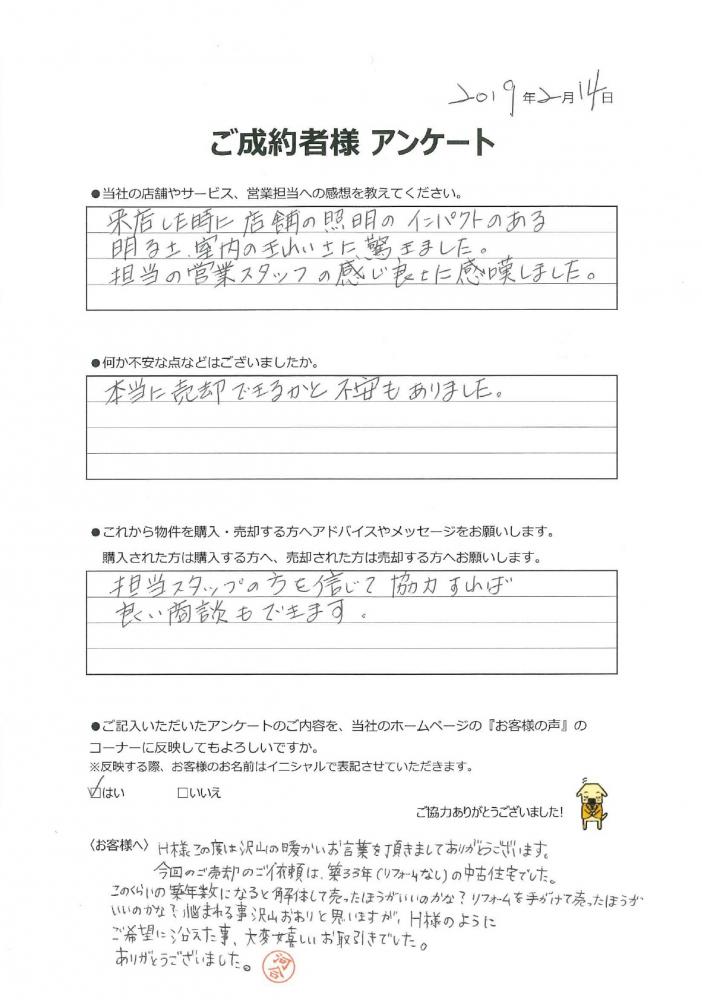 2019年2月14日
ご成約者様 アンケート
●当社の店舗やサービス、営業担当への感想を教えてください。
来店した時に店舗の照明のインパクトのある
明るさ、室内のきれいさに、驚きました。
担当の営業スタッフの感じ良さに感嘆しました。
●何か不安な点などはございましたか。
本当に売却できるかと不安もありました。
●これから物件を購入・売却する方へアドバイスやメッセージをお願いします。
購入された方は購入する方へ、売却された方は売却する方へお願いします。
担当スタッフの方を信じて協力すれば
良い商談もできます。
●ご記入いただいたアンケートのご内容を、当社のホームページの『お客様の声』の
コーナーに反映してもよろしいですか。
※反映する際、お客様のお名前はイニシャルで表記させていただきます。
☑はい □いいえ
ご協力ありがとうございました!
〈お客様へ〉 H様この度は沢山の暖かいお言葉を頂きましてありがとうございます。
今回のご売却のご依頼は、築33年(リフォームなし)の中古住宅でした。
このくらいの築年数になると解体して売ったほうがいいのかな?リフォームを手がけて売ったほうが
いいのかな?悩まれる事沢山おありと思いますが、H様のように
ご希望に沿えた事、大変嬉しいお取引きでした。
ありがとうございました。 河合